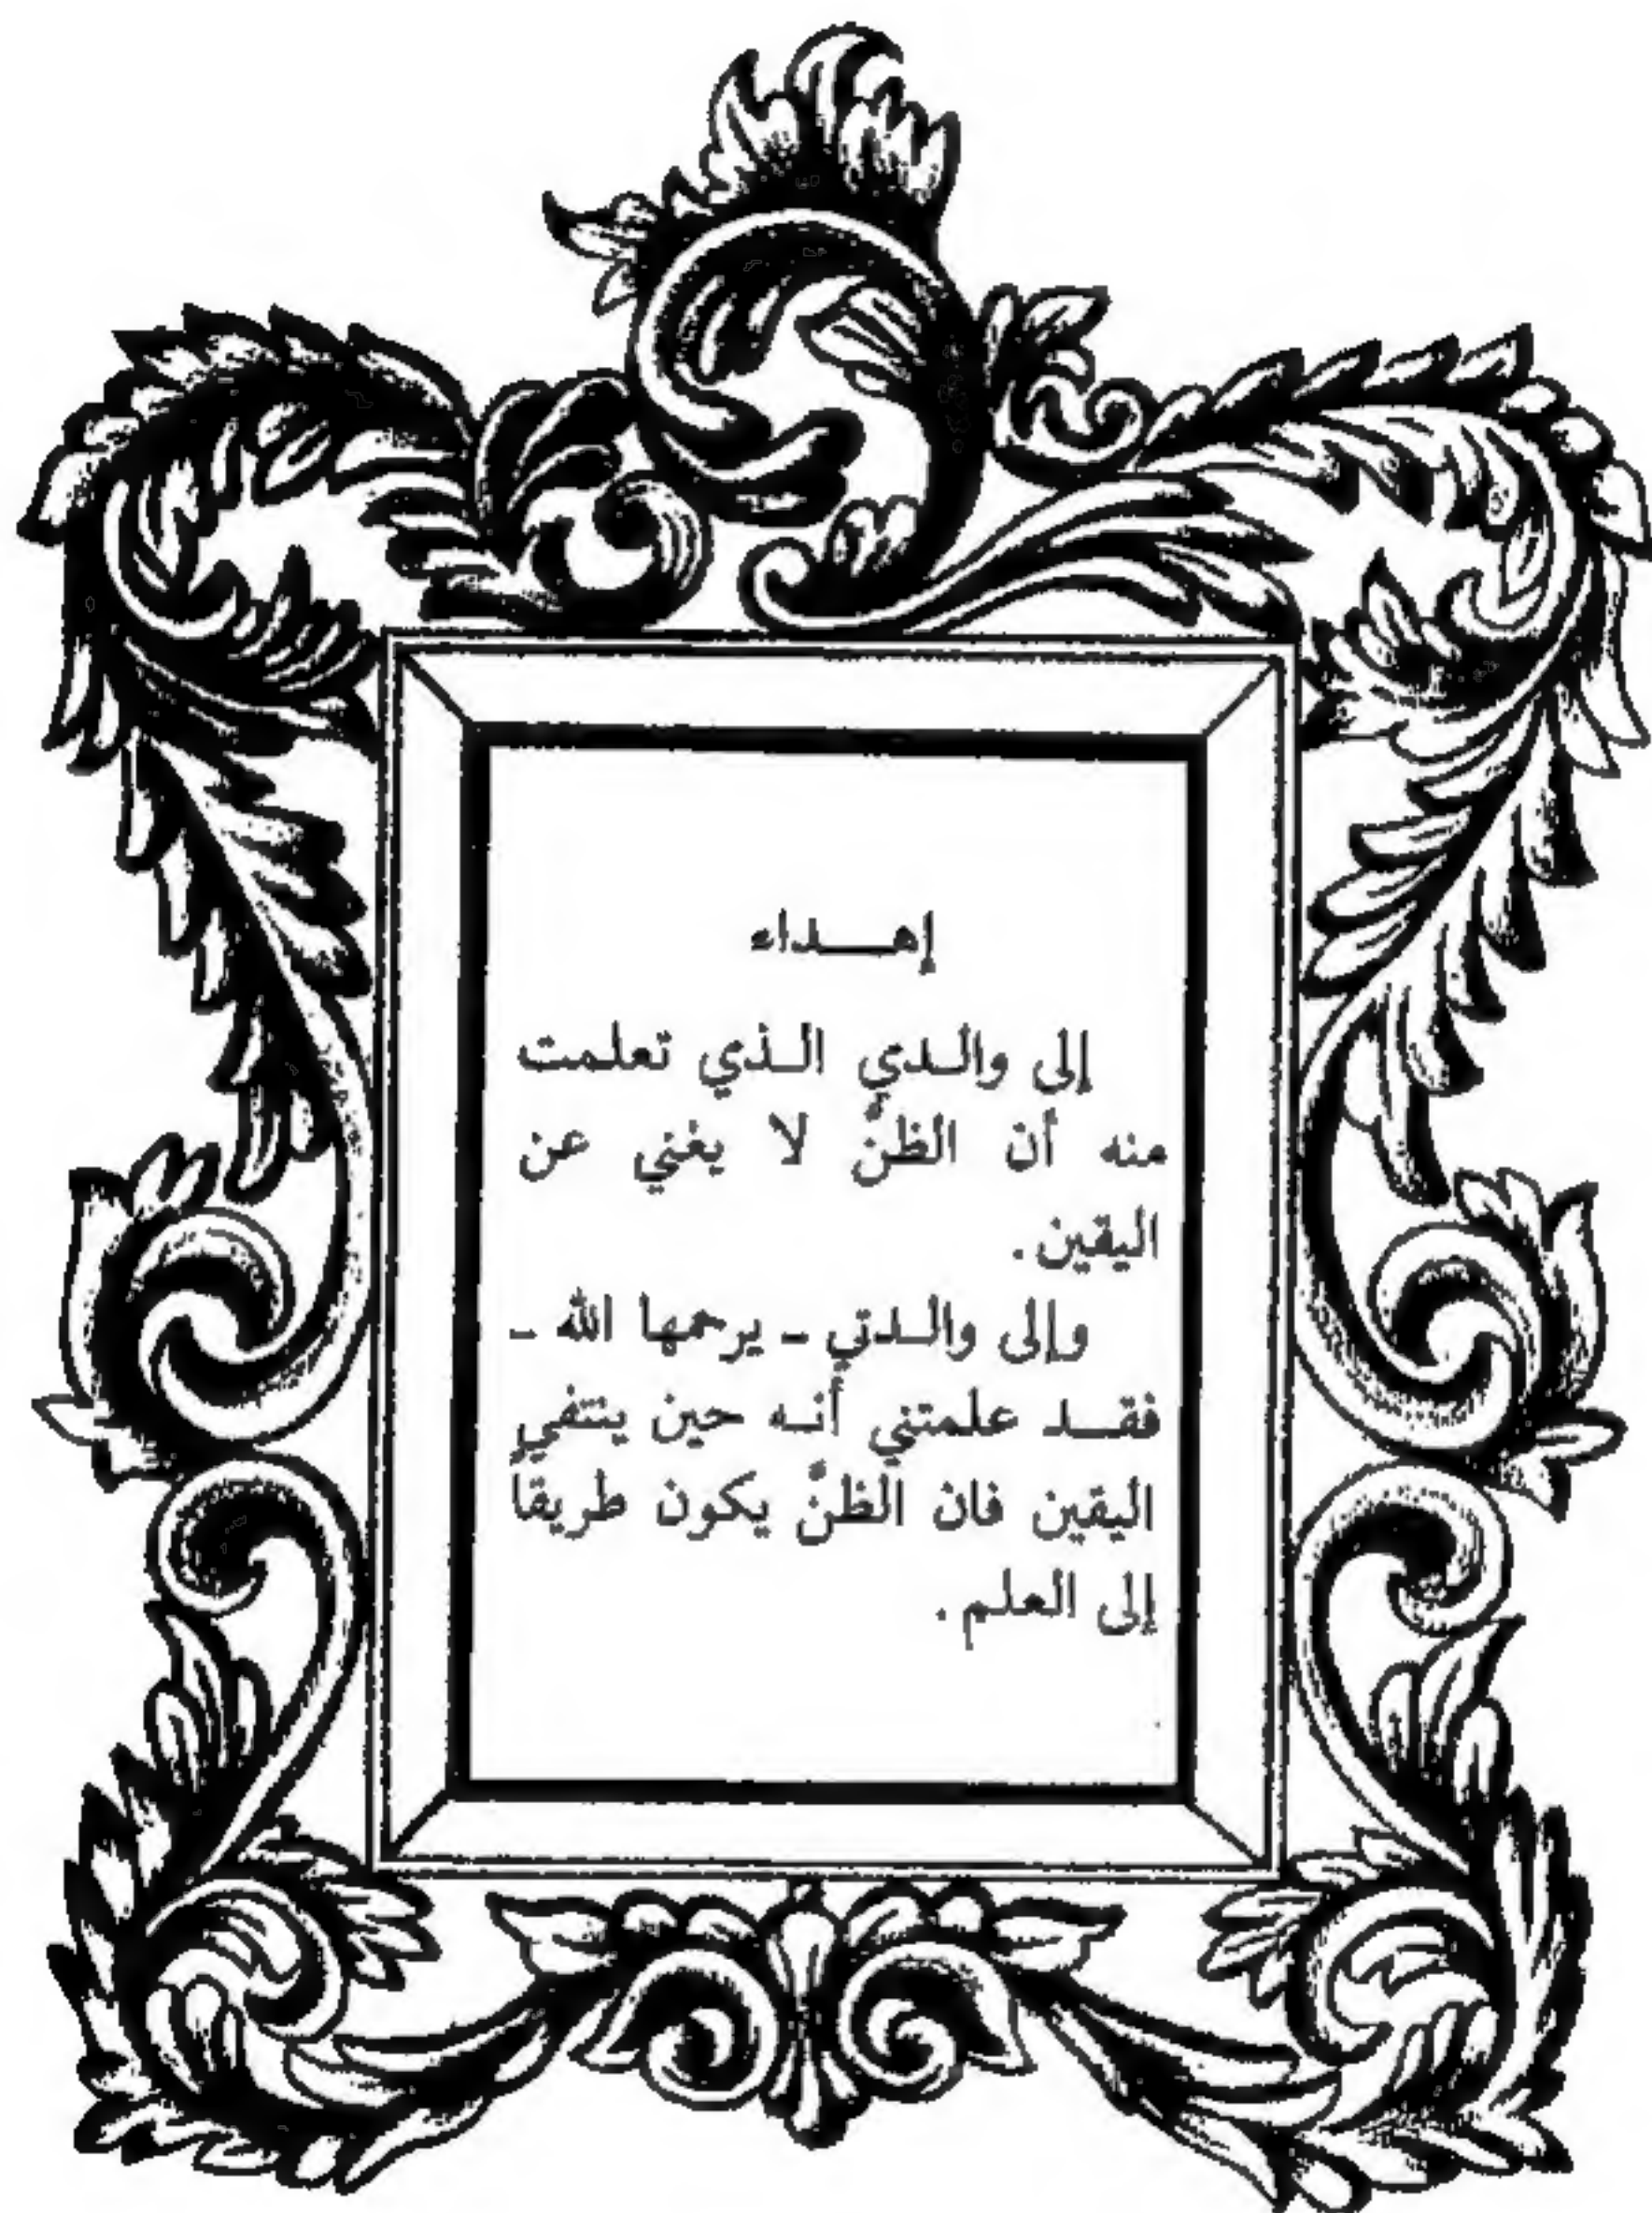 إهـــداء
إلى والـدي الـذي تعلمت
منه أن الظنَّ لا يغني عن
اليقين.
وإلى والـدتي - يرحمها الله -
فقـد علمتني أنـه حين ينتفي
اليقين فان الظنَّ يكون طريقاً
إلى العلم.